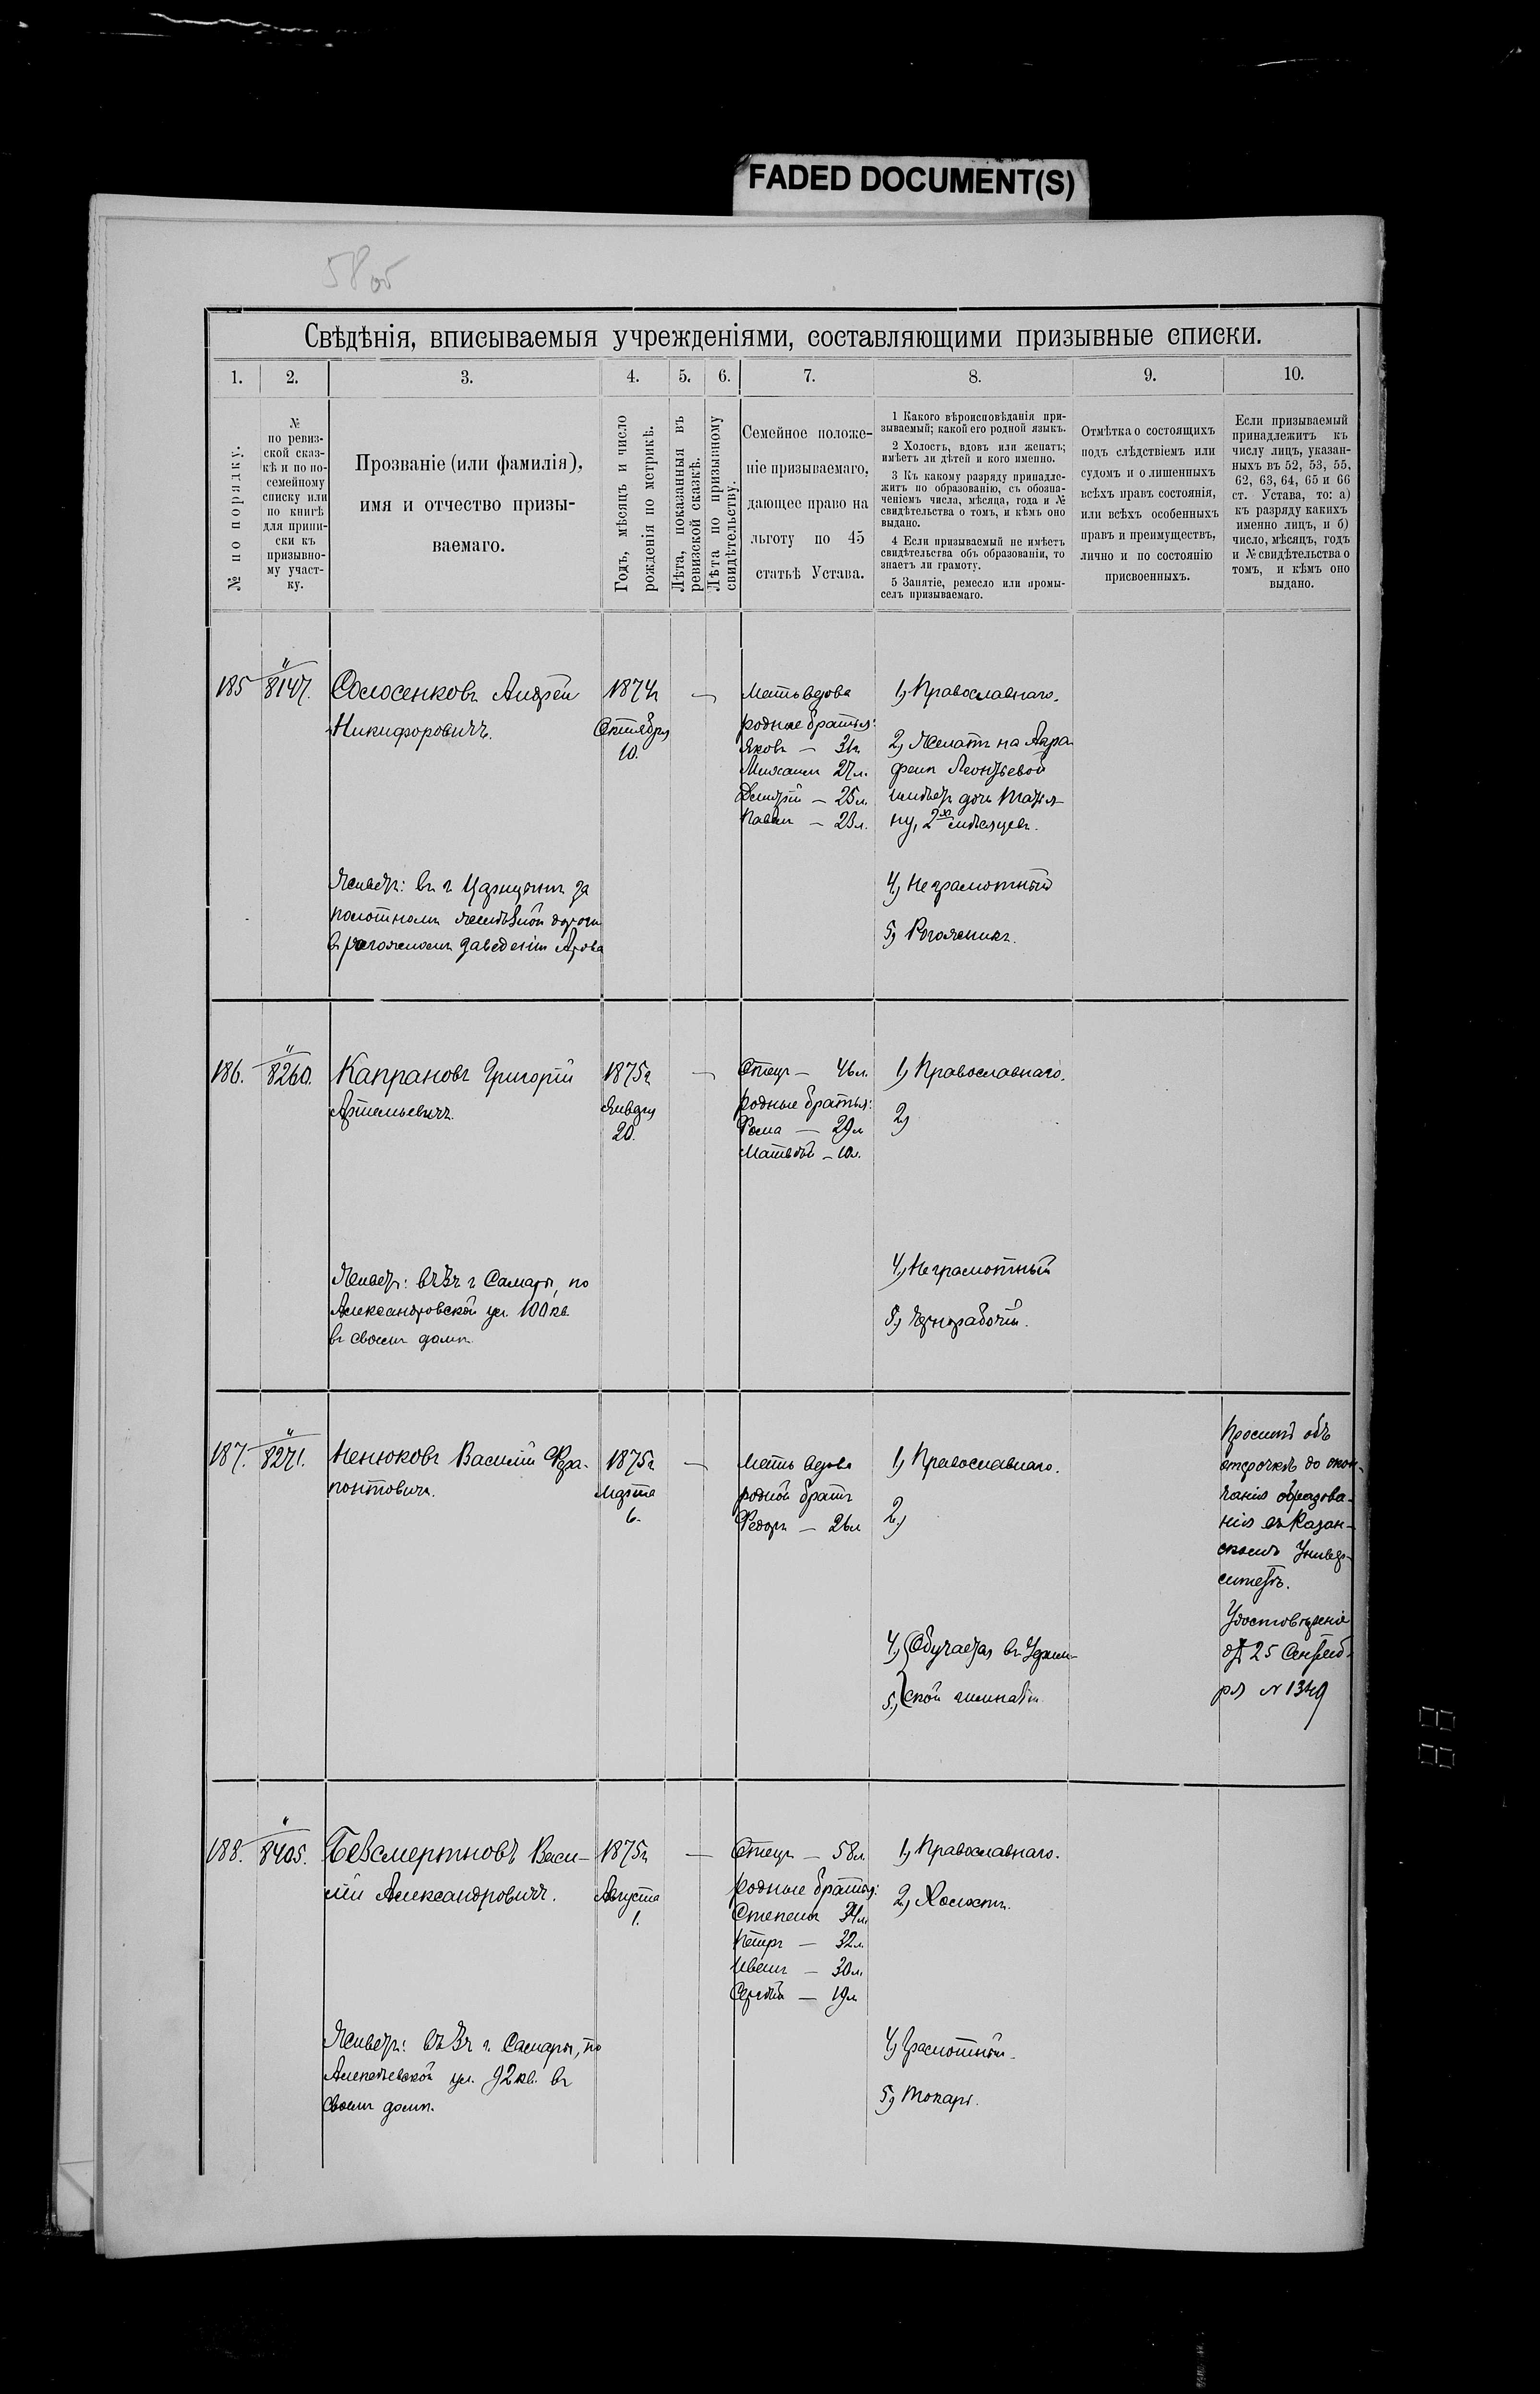 FADED DOCUMENT(S)
58об
Свѣдѣнія, вписываемыя учрежденіями, составляющими призывные списки.
1. 2. 3. 4. 5. 6. 7. 8. 9. 10.
№ по порядку.
№
по ревиз-
ской сказ-
кѣ и по по-
семейному
списку или
по книгѣ
для припи-
ски къ
призывно-
му участ-
ку.
Прозваніе (или фамилія),
имя и отчество призы-
ваемаго.
Годъ, мѣсяцъ и число
рожденія по метрикѣ.
Лѣта, показанныя въ
ревизской сказкѣ.
Лѣта по призывному
свидѣтельству.
Семейное положе-
ніе призываемаго,
дающее право на
льготу по 45
статьѣ Устава.
1 Какого вѣроисповѣданія при-
зываемый; какой его родной языкъ.
2 Холостъ, вдовъ или женатъ;
имѣетъ ли дѣтей и кого именно.
3 Къ какому разряду принадле-
житъ по образованію, съ обозна-
ченіемъ числа, мѣсяца, года и №
свидѣтельства о томъ, и кѣмъ оно
выдано.
4 Если призываемый не имѣетъ
свидѣтельства объ образованіи, то
знаетъ ли грамоту.
5 Занятіе, ремесло или промы-
селъ призываемаго.
Отмѣтка о состоящихъ
подъ слѣдствіемъ или
судомъ и о лишенныхъ
всѣхъ правъ состоянія,
или всѣхъ особенныхъ
правъ и преимуществъ,
лично и по состоянію
присвоенныхъ.
Если призываемый
принадлежитъ къ
числу лицъ, указан-
ныхъ въ 52, 53, 55,
62, 63, 64, 65 и 66
ст. Устава, то: а)
къ разряду какихъ
именно лицъ, и б)
число, мѣсяцъ, годъ
и № свидѣтельства о
томъ, и кѣмъ оно
выдано.
185
"
8147.
Солосенковъ Андрей
Никифоровичъ.
Живетъ: въ г Царицынѣ за
полотномъ желѣзной дороги
в рогожномъ заведеніи
1874г
Октября
10.
—
Мать вдова
родные братья:
Яковъ — 31г.
Михаилъ 27л.
Дмитрій — 25л.
Павелъ — 23л.
1, Православнаго.
2, Женатъ на Агра-
фенѣ Леонтьевой
имѣетъ дочь Татья-
ну, 2х мѣсяцевъ.
4, Неграмотный
5, Рогожникъ.
186.
"
8260.
Капрановъ Григорій
Артемьевичъ.
Живетъ: въ 3ч г Самары, по
Александровской ул. 100 кв.
въ своемъ домѣ.
1875г
Января
20.
—
Отецъ — 46л.
родные братья:
Фома — 29л
Матвѣй — 10л.
1, Православнаго.
2,
4, Неграмотный
5, Чернорабочій.
187.
"
8271.
Ненюковъ Василій Фера-
понтовичъ.
1875г
Марта
6.
—
Мать вдова
родной братъ
Федоръ — 26л
1, Православнаго.
2,
4, Обучается въ Уфим-
5, ской гимназіи
Проситъ объ
отсрочкѣ до окон-
чанія образова-
нія въ Казан-
скомъ Универ-
ситетѣ.
Удостовѣреніе
отъ 25 Сентяб-
ря № 1349
188.
"
8405.
Безсмертновъ Васи-
лій Александровичъ.
Живетъ: въ 3ч г. Самары, по
Алексѣевской ул. 92 кв. въ
своемъ домѣ.
1875г
Августа
1.
—
Отецъ — 58л
родные братья:
Степанъ 34л
Петръ — 32л.
Иванъ — 30л.
Сергѣй — 19л
1, Православнаго.
2, Холостъ.
4, Грамотный.
5, Токарь.